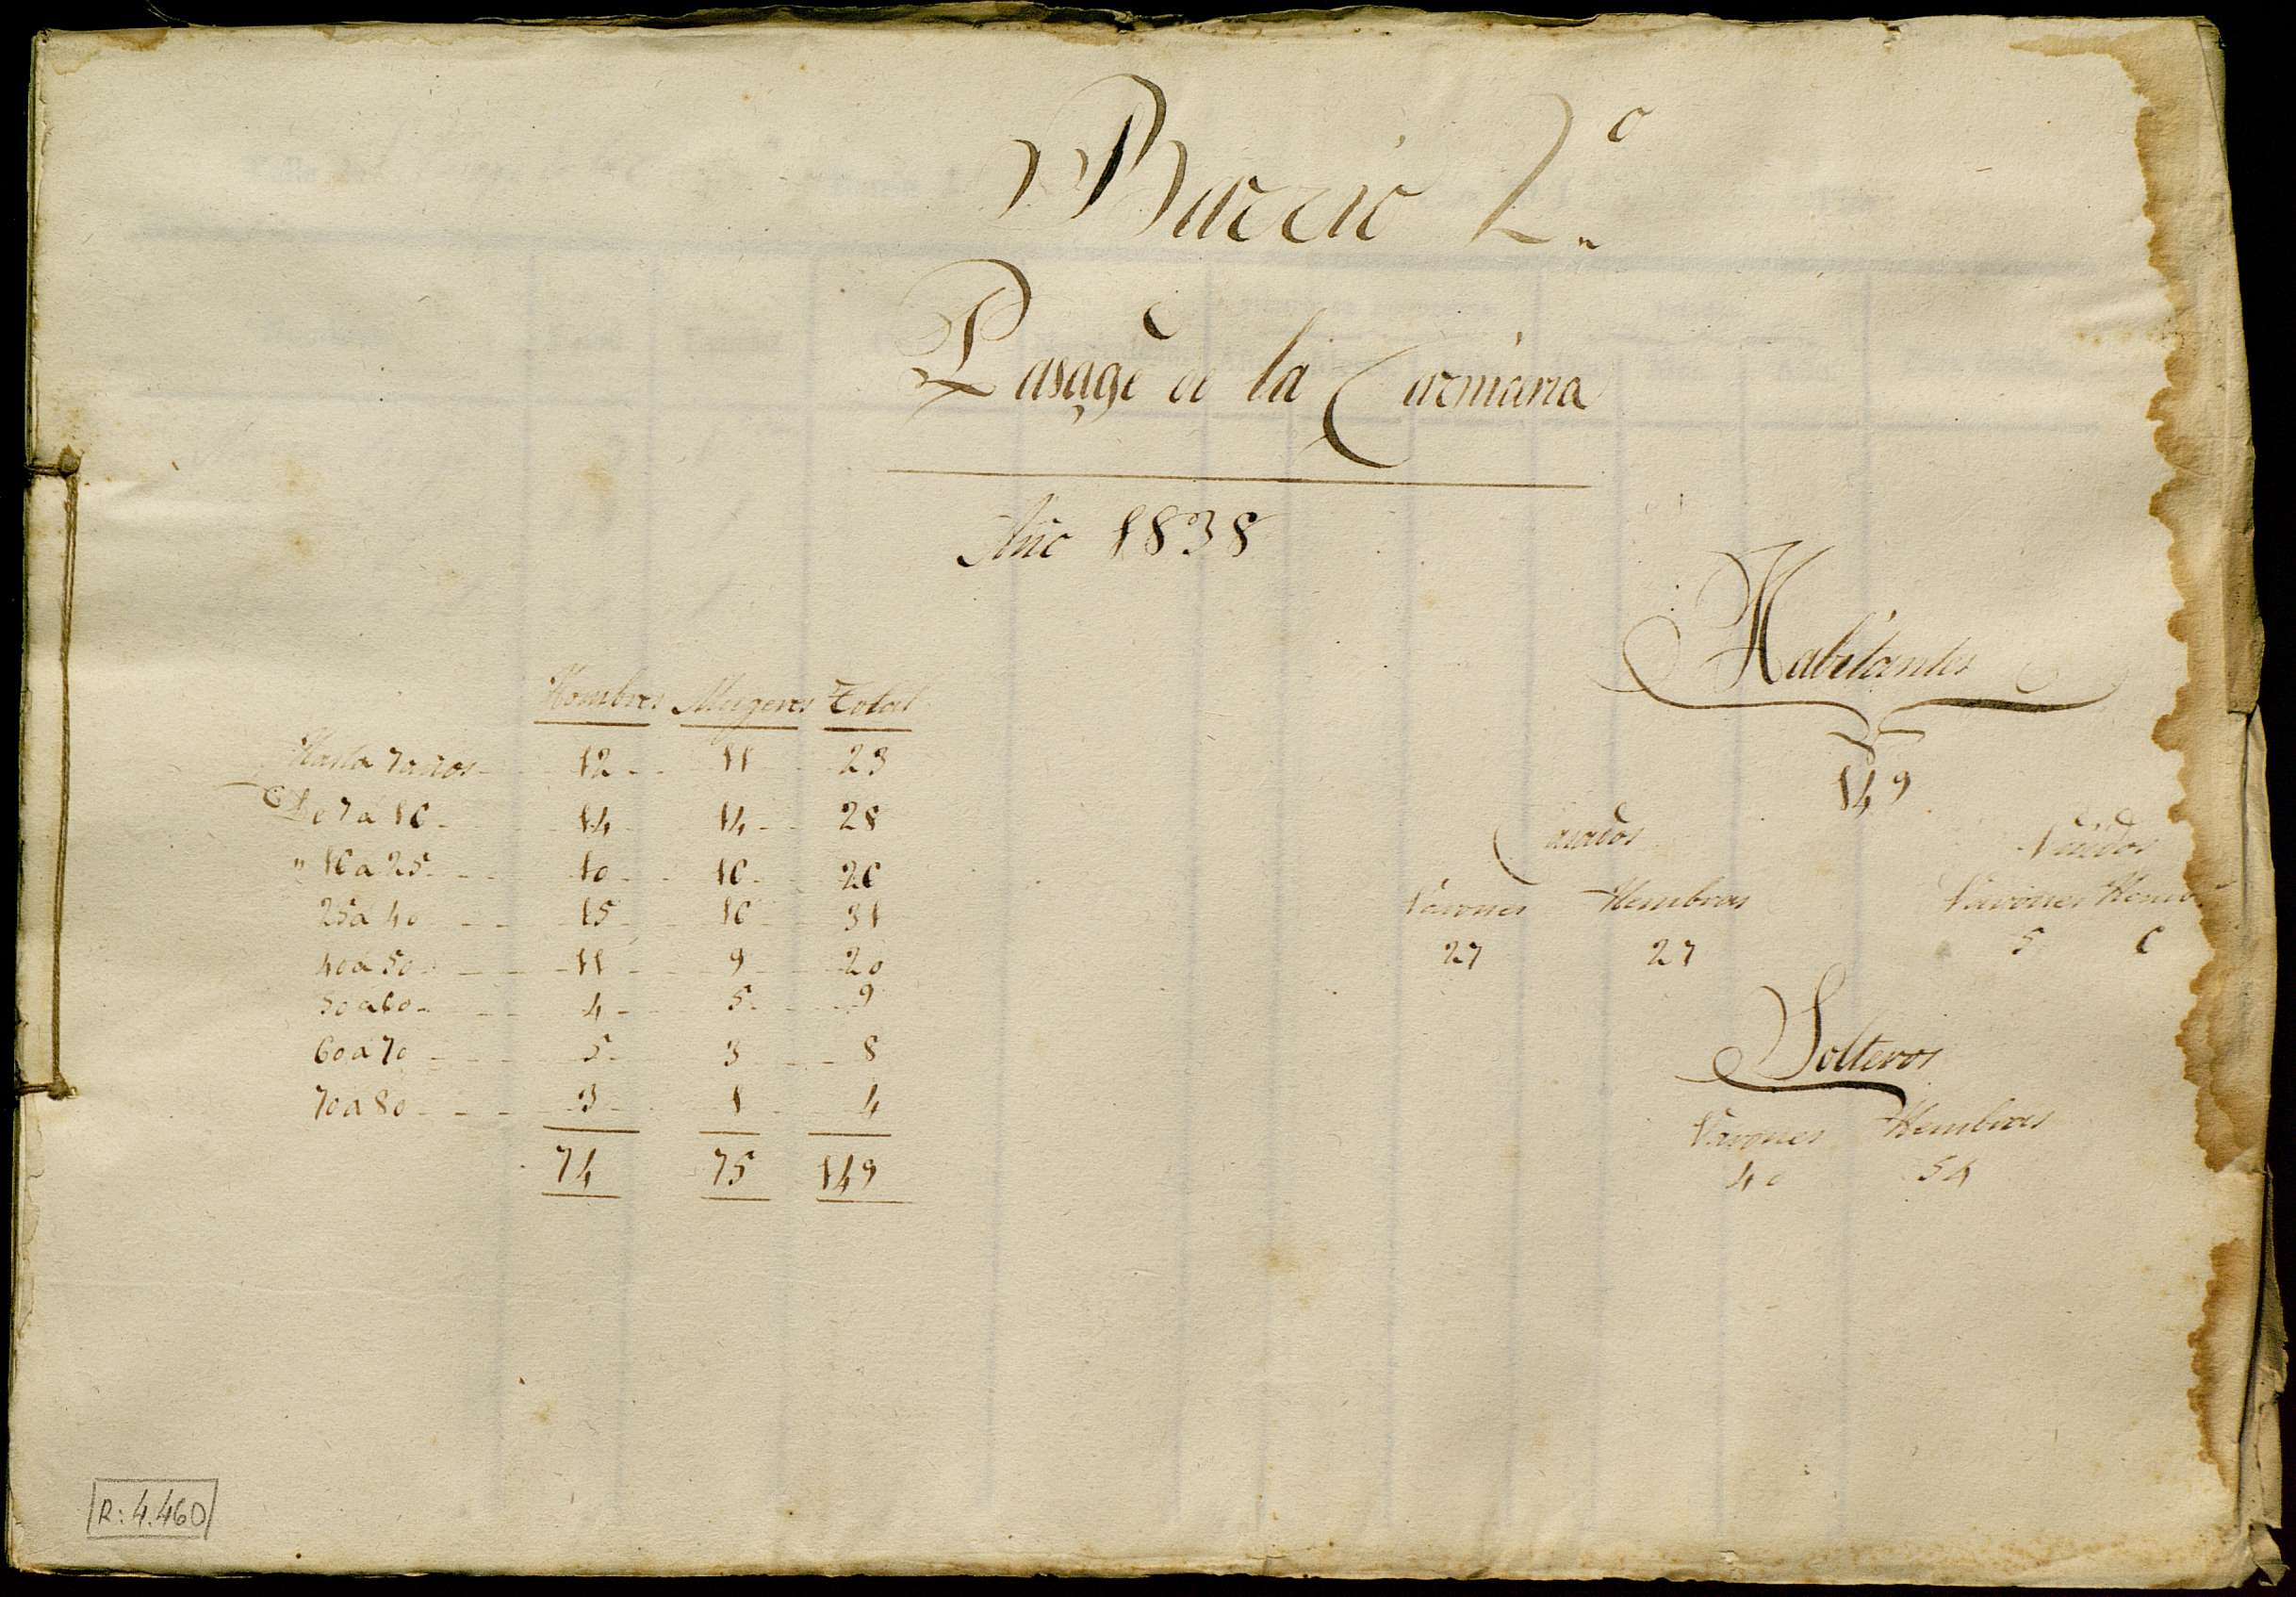 Barrio 2.º
Pasage de la Carniana
Año 1838
Habitantes
149
Hombres Mugeres Total
Hasta 7 años 12 11 23
De 7 a 16 14 14 28
" 16 a 25 10 16 26
25 a 40 15 16 31
40 a 50 11 9 20
50 a 60 4 5 9
60 a 70 5 3 8
70 a 80 3 1 4
74 75 149
Casados
Varones Hembras
27 27
Viudos
Varones Hemb.s
5 6
Solteros
Varones Hembras
40 54
R: 4.460